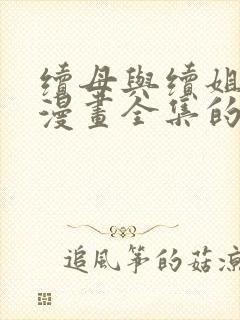 續母與續姐
漫畫全集的
追風箏的菇涼